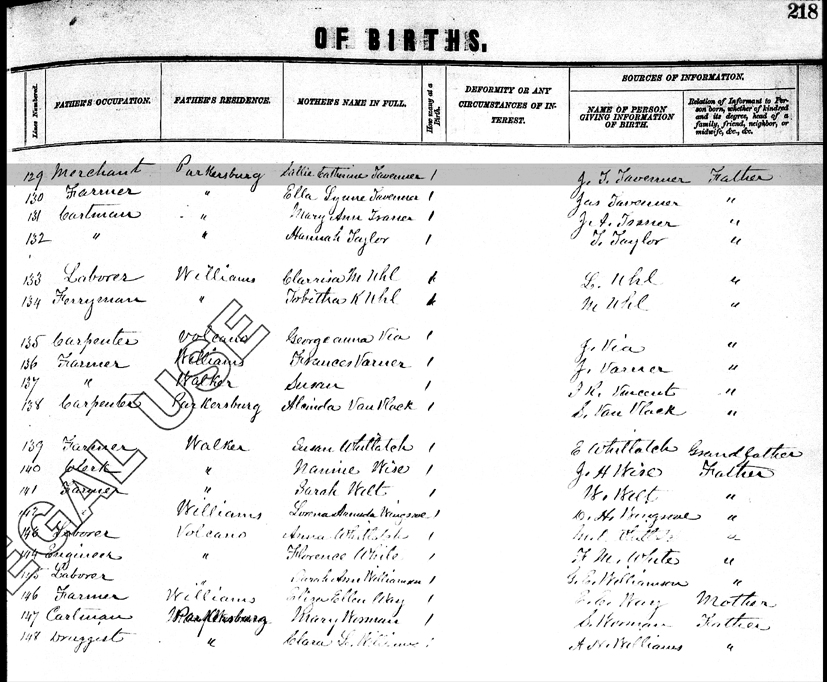 218
OF BIRTHS.
Lines Numbered. FATHER'S OCCUPATION. FATHER'S RESIDENCE. MOTHER'S NAME IN FULL. How many at a Birth. DEFORMITY OR ANY CIRCUMSTANCES OF INTEREST. SOURCES OF INFORMATION.
NAME OF PERSON GIVING INFORMATION OF BIRTH. Relation of Informant to Person born, whether of kindred and its degree, head of a family, friend, neighbor, or midwife, &c., &c.
129 Merchant Parkersburg Catherine Tavenner 1 J. T. Tavenner Father
130 Farmer " Ella Lynne Tavenner 1 Jas Tavenner "
131 Cartman " Mary Ann 1 "
132 " " Hannah Taylor 1 T. Taylor "
133 Laborer Williams Clarrisa M Uhl 1 L. Uhl "
134 Ferryman " Tobitha K Uhl 1 M Uhl "
135 Carpenter Volcano Georgeanna Via 1 J. Via "
136 Farmer Williams Frances Varner 1 J. Varner "
137 " Walker Susan 1 Vincent "
138 Carpenter Parkersburg Van Vlack 1 Van Vlack "
139 Farmer Walker Susan Whitlatch 1 E Whitlatch Grandfather
140 Clerk " Nannie Wise 1 J. H Wise Father
141 Farmer " Sarah Welt 1 W. Welt "
Williams 1 "
Laborer Volcano Anna 1 "
Engineer " Florence White 1 White "
Laborer " Sarah Ann Williamson 1 Williamson "
146 Farmer Williams Eliza Ellen Way 1 Way Mother
147 Cartman Parkersburg Mary 1 Father
148 Druggist " Clara Williams A Williams "
LEGAL USE